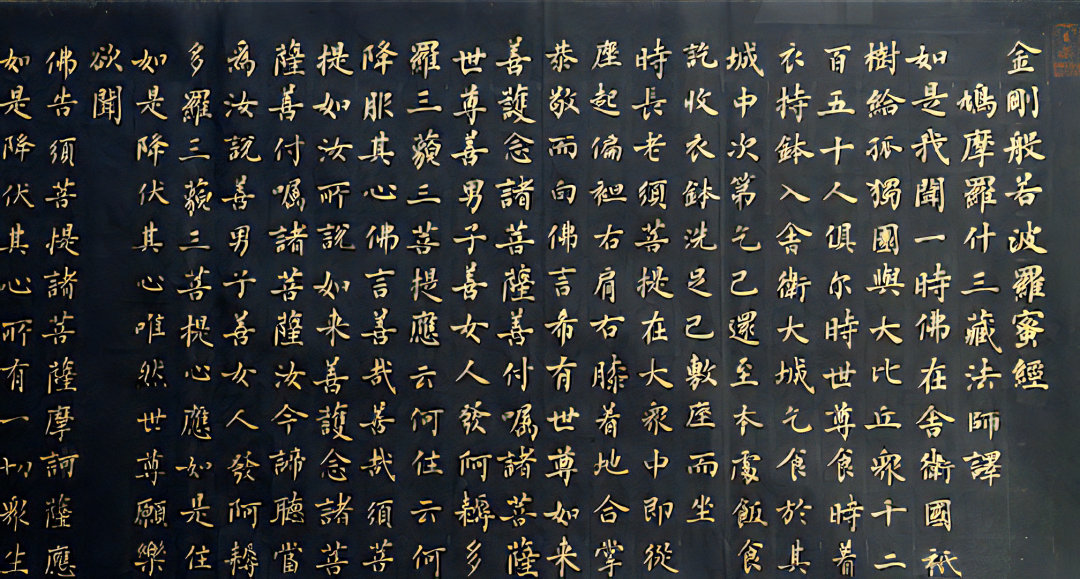 金剛般若波羅蜜經
鳩摩羅什三藏法師譯
如是我聞一時佛在舍衛國祇
樹給孤獨園與大比丘衆千二
百五十人俱尔時世尊食時着
衣持鉢入舍衛大城乞食於其
城中次第乞已還至本處飯食
訖收衣鉢洗足已敷座而坐
時長老須菩提在大衆中即從
座起偏袒右肩右膝着地合掌
恭敬而向佛言希有世尊如来
善護念諸菩薩善付嘱諸菩薩
世尊善男子善女人發阿耨多
羅三藐三菩提應云何住云何
降服其心佛言善哉善哉須菩
提如汝所說如来善護念諸菩
薩善付嘱諸菩薩汝今諦聽當
爲汝說善男子善女人發阿耨
多羅三藐三菩提心應如是住
如是降伏其心唯然世尊願樂
欲聞
佛告須菩提諸菩薩摩訶薩應
如是降伏其心所有一切衆生